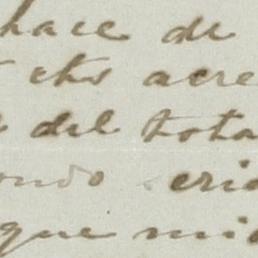 hace de
etc acre
del tota
ondo cria
que mi